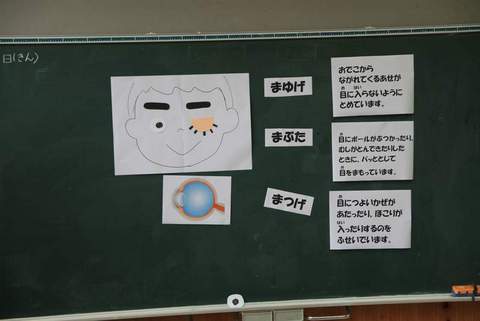 日(きん)
まゆげ
おでこから
ながれてくるあせが
目に入らないように
とめています。
まぶた
目にボールがぶつかったり、
むしがとんできたりした
ときに、パッととじて
目をまもっています。
まつげ
目につよいかぜが
あたったり、ほこりが
入ったりするのを
ふせいでいます。